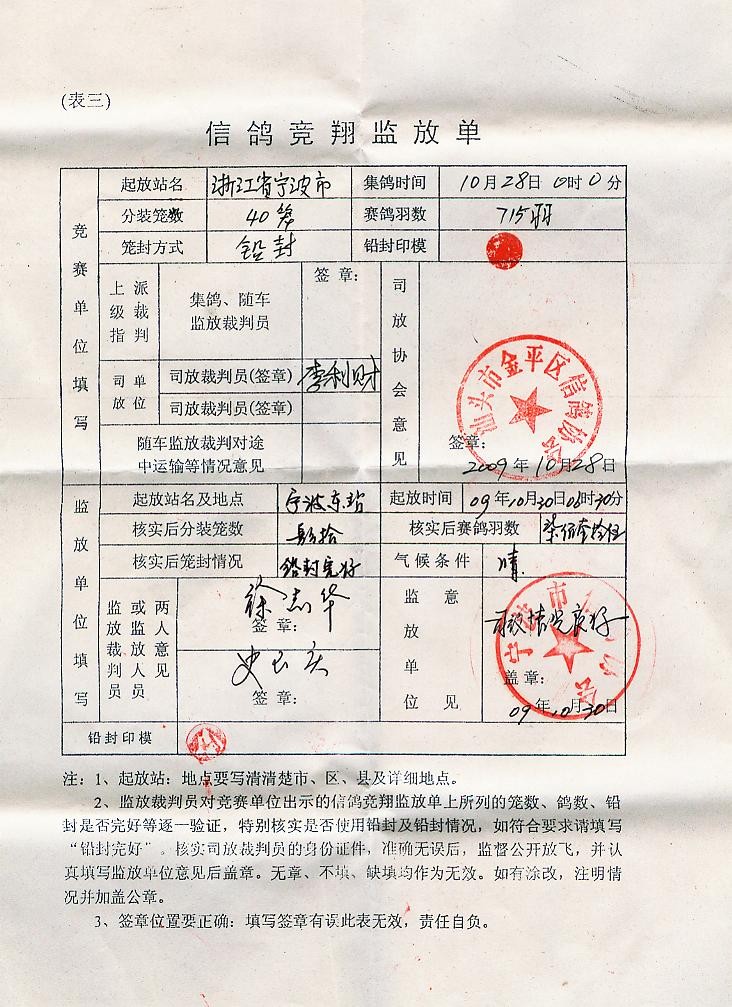 (表三)
信鸽竞翔监放单
竞赛单位填写
起放站名 浙江省宁波市 集鸽时间 10月28日 0时0分
分装笼数 40笼 赛鸽羽数 715羽
笼封方式 铅封 铅封印模
上级指派裁判 集鸽、随车监放裁判员 签章:
司放单位 司放裁判员(签章) 李利财
司放裁判员(签章)
随车监放裁判对途中运输等情况意见
司放协会意见
汕头市金平区信鸽协会
签章:
2009年10月28日
监放单位填写
起放站名及地点 宁波东站 起放时间 09年10月30日06时30分
核实后分装笼数 肆拾 核实后赛鸽羽数
核实后笼封情况 铅封完好 气候条件 晴
监放裁判员或监放人员两人意见
徐志华
签章:
签章:
监放单位意见
盖章:
09年10月30日
铅封印模
注:1、起放站:地点要写清清楚市、区、县及详细地点。
2、监放裁判员对竞赛单位出示的信鸽竞翔监放单上所列的笼数、鸽数、铅
封是否完好等逐一验证,特别核实是否使用铅封及铅封情况,如符合要求请填写
“铅封完好”。核实司放裁判员的身份证件,准确无误后,监督公开放飞,并认
真填写监放单位意见后盖章。无章、不填、缺填均作为无效。如有涂改,注明情
况并加盖公章。
3、签章位置要正确:填写签章有误此表无效,责任自负。